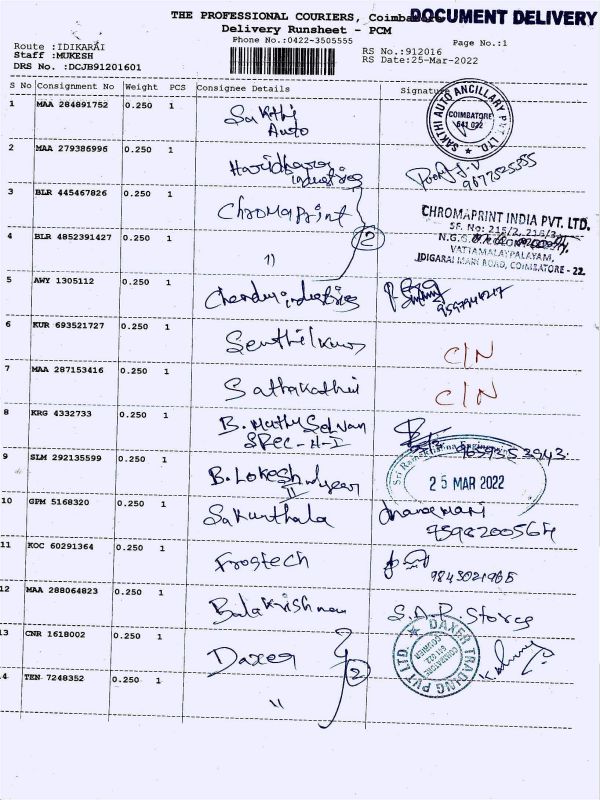 THE PROFESSIONAL COURIERS, Coimbatore
DOCUMENT DELIVERY
Delivery Runsheet - PCM
Phone No.:0422-3505555
Page No.:1
Route :IDIKARAI
Staff :MUKESH
DRS No. :DCJB91201601
RS No.:912016
RS Date:25-Mar-2022
S No Consignment No Weight PCS Consignee Details Signature
1 MAA 284891752 0.250 1 Sakthi Auto
SAKTHI AUTO ANCILLARY PVT. LTD.
COIMBATORE
641 022
2 MAA 279386996 0.250 1 industries
3 BLR 445467826 0.250 1 ChromaPrint
CHROMAPRINT INDIA PVT. LTD.
SF. No: 216/2, 216/3
N.G.G.
VATTAMALAIPALAYAM,
IDIGARAI MAIN ROAD, COIMBATORE - 22.
4 BLR 4852391427 0.250 1 11
2
5 AWY 1305112 0.250 1 industries
6 KUR 693521727 0.250 1 C/N
7 MAA 287153416 0.250 1 C/N
8 KRG 4332733 0.250 1 B. Muthu Selvan
SREC-N-I
Sri Ramakrishna Engineering
25 MAR 2022
9 SLM 292135599 0.250 1 B. Lokesh
II
10 GPM 5168320 0.250 1 Sakunthala
9598200564
11 KOC 60291364 0.250 1 Frostech
12 MAA 288064823 0.250 1 Balakrishnan S.A.P. Stores
13 CNR 1618002 0.250 1 Daxer
DAXER TRADING PVT LTD.
COIMBATORE
641 022
14 TEN 7248352 0.250 1 11
2